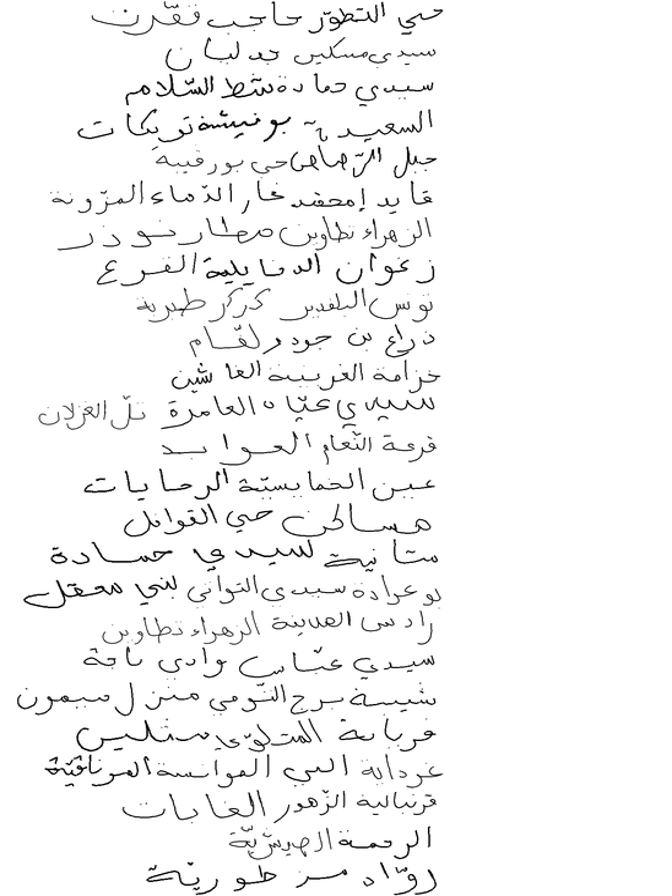 حي التطوّر حاجب فقّرت
سيدي مسكين جدليان
سيدي حمادة شط السّلام
السعيديّة بوفيشة تريكات
جبل الرّصاص حي بورقيبة
قايد إمحمد غار الدّماء المزّونة
الزهراء تطاوين مطار نوذر
زغوان الدفايلية القرع
تونس البلفدير كركر طبربة
ذراع بن جودر لقّام
خزامة الغربيّة
سيدي عيّاد العامرة تلّ الغزلان
قرعة النّعام العوابد
عين الخمايسيّة الرحايات
مساكن حي القوافل
ستانية سيدي حمادة
بوعرادة سيدي التواتي بني معقل
رادس المدينة الزهراء تطاوين
سيدي عبّاس وادي باجة
شيبة برج التّومي منزل ميمون
فريانة المتلوّي
غرداية البي الموانسة المرناقيّة
قرنبالية الزّهور الغابات
الرحمة الهيشريّة
روّاد